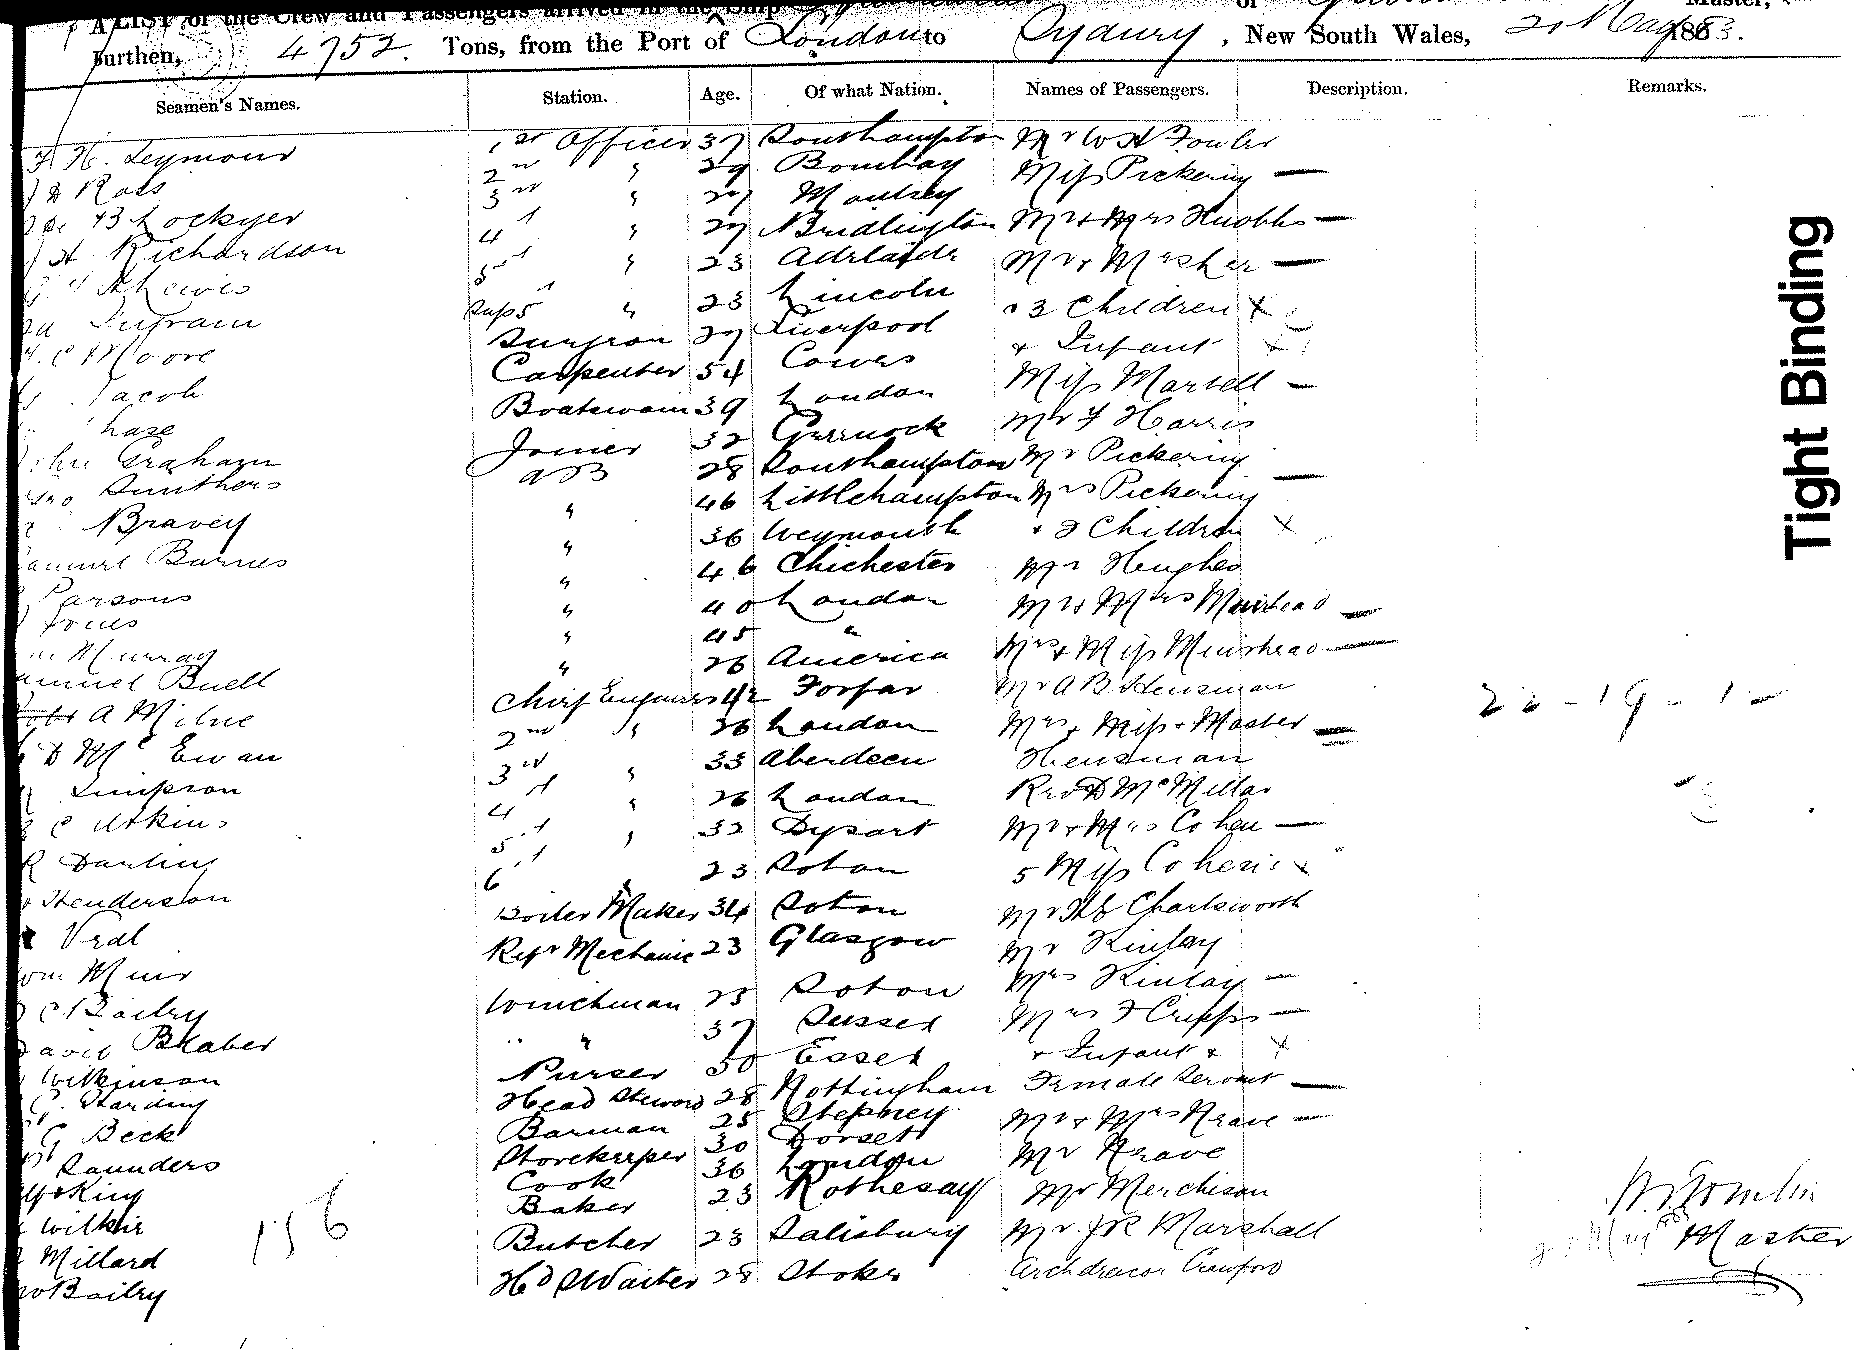 A LIST of the Crew and Passengers arrived in the Ship of Master,
Burthen, 4752. Tons, from the Port of London to Sydney, New South Wales, 20 May 1883.
Seamen's Names. Station. Age. Of what Nation. Names of Passengers. Description. Remarks.
H. Seymour 1st Officer 37 Southampton Mr W H Fowler
Ross 2nd " 29 Bombay Miss Pickering —
B Lockyer 3rd " 27 Mr & Mrs Knobbs —
H Richardson 4th " 27 Bridlington Mr & Mrs Asher —
Lewis 5th " 23 Adelaide & 3 Children x
Ingram Sup 5 " 23 Lincoln & Infant x
C Moore Surgeon 27 Liverpool Miss Martell —
Jacob Carpenter 54 Cowes Mr F Harris
Chase Boatswain 39 London Mr Pickering
John Graham Joiner 32 Greenock Mrs Pickering —
Smithers AB 28 Southampton & 2 Children x
Bravery " 46 Littlehampton Mr Hughes
Samuel Barnes " 36 Weymouth Mr & Mrs Muirhead —
Parsons " 46 Chichester Mrs & Miss Muirhead —
Jones " 40 London Mr A B Hensman
Wm Murray " 45 " Mrs & Miss & Master —
Samuel Buell " 26 America Hensman
Robt A Milne Chief Engineer 42 Forfar Revd D McMillan
D McEwan 2nd " 36 London Mr & Mrs Cohen —
Simpson 3rd " 33 Aberdeen 5 Miss Cohens x
C Atkins 4th " 26 London Mr Charlsworth
R Darling 5th " 32 Dysart Mr Kinlay
Henderson 6th 23 Soton Mrs Kinlay —
Veal Boiler Maker 34 Soton Mrs F Cripps —
Wm Muir Refr Mechanic 23 Glasgow & Infant & x
C Bailey Winchman 25 Soton Female Servant —
David Blaber " 37 Sussex Mr & Mrs Krave —
Wilkinson Purser 30 Essex Mr Krave
G. Harding Head Steward 28 Nottingham Mr Merchison
G Beck Barman 25 Stepney Mr JR Marshall
Saunders Storekeeper 30 Dorset Archdeacon Crawford
King Cook 36 London
Wilkie Baker 23 Rothesay
Millard Butcher 23 Salisbury
Bailey Hd Waiter 28 Stoke
22 - 19 - 1 -
156
Tomlin
Master
Tight Binding